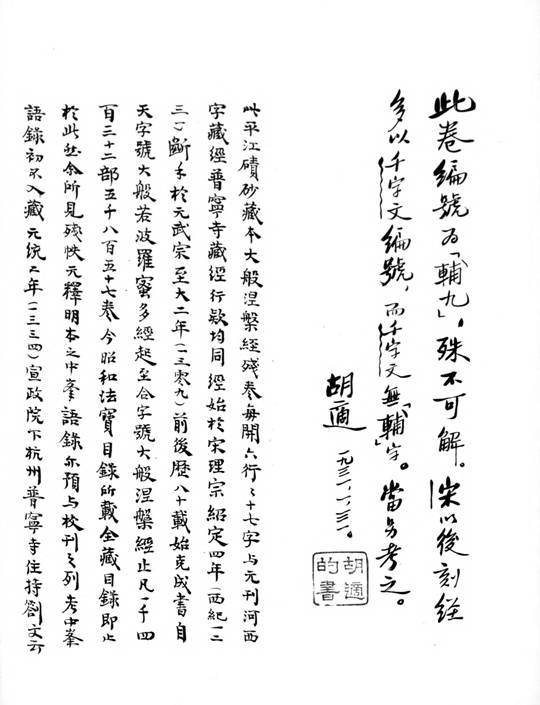 此卷編號為「輔九」，殊不可解。宋以後刻經
多以千字文編號，而千字文無「輔」字。當另考之。
胡適
一九三一、一、三一。
胡適的書
此平江磧砂藏本大般涅槃經殘卷每開六行行十七字与元刊河西
字藏經普寧寺藏經行款均同經始於宋理宗紹定四年（西紀一二
三一）斷手於元武宗至大二年（一三零九）前後歷八十載始克成書自
天字號大般若波羅蜜多經起至合字號大般涅槃經止凡一千四
百三十二部五千八百五十七卷今昭和法寶目錄所載全藏目錄即止
於此然余所見殘帙元釋明本之中峯語錄亦預与校刊之列考中峯
語錄初不入藏元統二年（一三三四）宣政院下杭州普寧寺住持劉文云